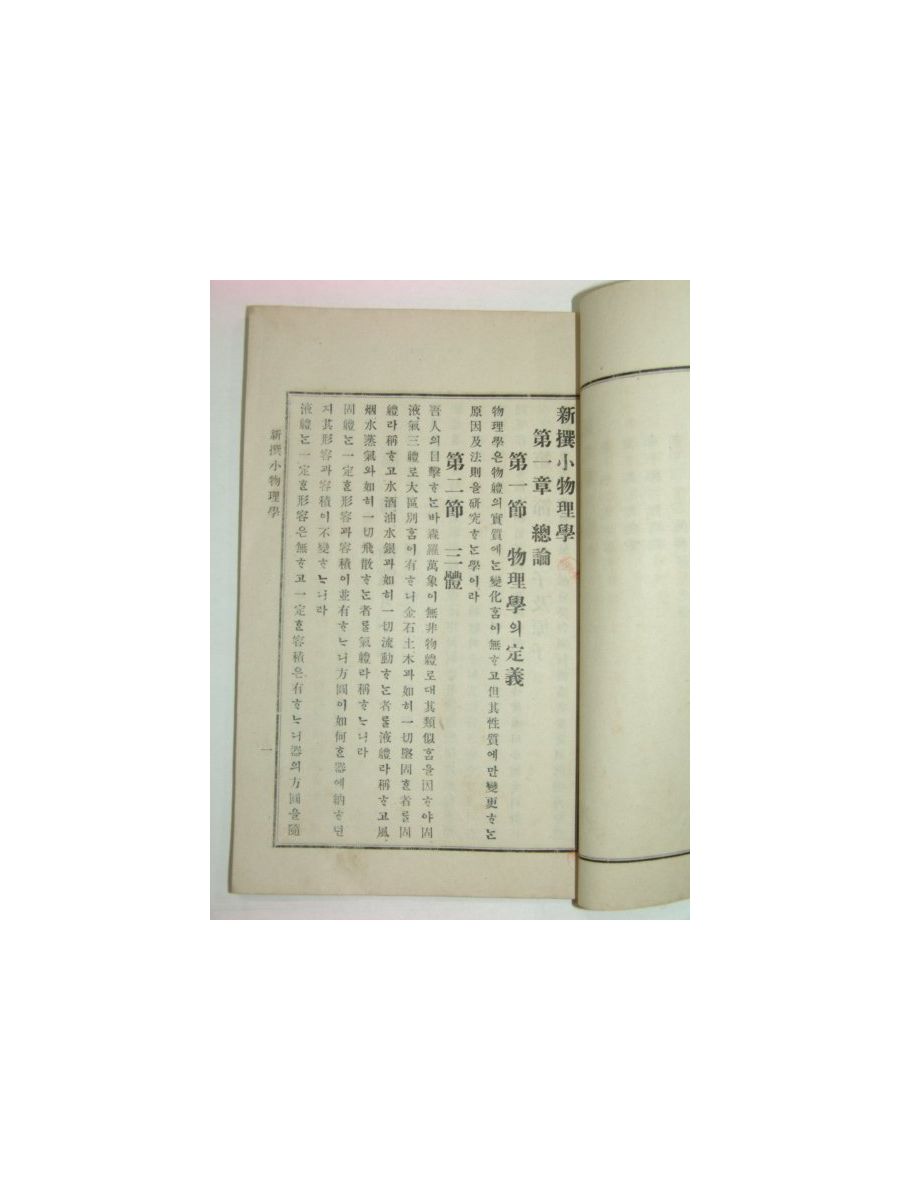 新撰小物理學
第一章 總論
第一節 物理學의定義
物理學은物體의實質에ᄂᆞᆫ變化홈이無ᄒᆞ고但其性質에만變更ᄒᆞᄂᆞᆫ
原因及法則을硏究ᄒᆞᄂᆞᆫ學이라
第二節 三體
吾人의目擊ᄒᆞᄂᆞᆫ바森羅萬象이無非物體로대其類似홈을因ᄒᆞ야固、
液、氣三體로大區別홈이有ᄒᆞ니金石土木과如히一切堅固ᄒᆞᆫ者ᄅᆞᆯ固
體라稱ᄒᆞ고水酒油水銀과如히一切流動ᄒᆞᄂᆞᆫ者ᄅᆞᆯ液體라稱ᄒᆞ고風、
烟水蒸氣와如히一切飛散ᄒᆞᄂᆞᆫ者ᄅᆞᆯ氣體라稱ᄒᆞᄂᆞ니라
固體ᄂᆞᆫ一定ᄒᆞᆫ形容과容積이並有ᄒᆞᄂᆞ니方圓이如何ᄒᆞᆫ器에納ᄒᆞ던
지其形容과容積이不變ᄒᆞᄂᆞ니라
液體ᄂᆞᆫ一定ᄒᆞᆫ形容은無ᄒᆞ고一定ᄒᆞᆫ容積은有ᄒᆞᄂᆞ니器의方圓을隨
新撰小物理學
一